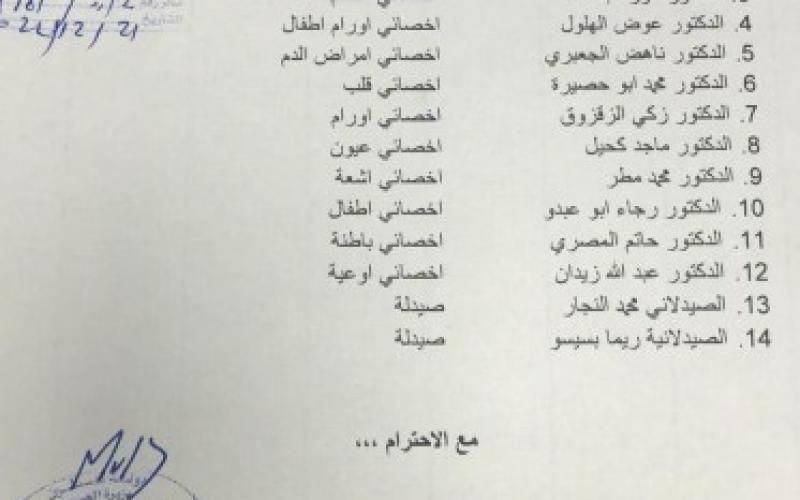 التاريخ
4. الدكتور عوض الهلول اخصائي اورام اطفال
5. الدكتور ناهض الجعبري اخصائي امراض الدم
6. الدكتور محمد ابو حصيرة اخصائي قلب
7. الدكتور زكي الزقزوق اخصائي اورام
8. الدكتور ماجد كحيل اخصائي عيون
9. الدكتور محمد مطر اخصائي اشعة
10. الدكتور رجاء ابو عبدو اخصائي اطفال
11. الدكتور حاتم المصري اخصائي باطنة
12. الدكتور عبد الله زيدان اخصائي اوعية
13. الصيدلاني محمد النجار صيدلة
14. الصيدلانية ريما بسيسو صيدلة
مع الاحترام ،،،